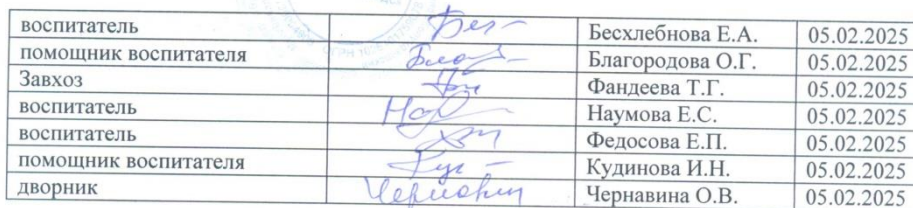 воспитатель Бесхлебнова Е.А. 05.02.2025
помощник воспитателя Благородова О.Г. 05.02.2025
Завхоз Фандеева Т.Г. 05.02.2025
воспитатель Наумова Е.С. 05.02.2025
воспитатель Федосова Е.П. 05.02.2025
помощник воспитателя Кудинова И.Н. 05.02.2025
дворник Чернавина О.В. 05.02.2025